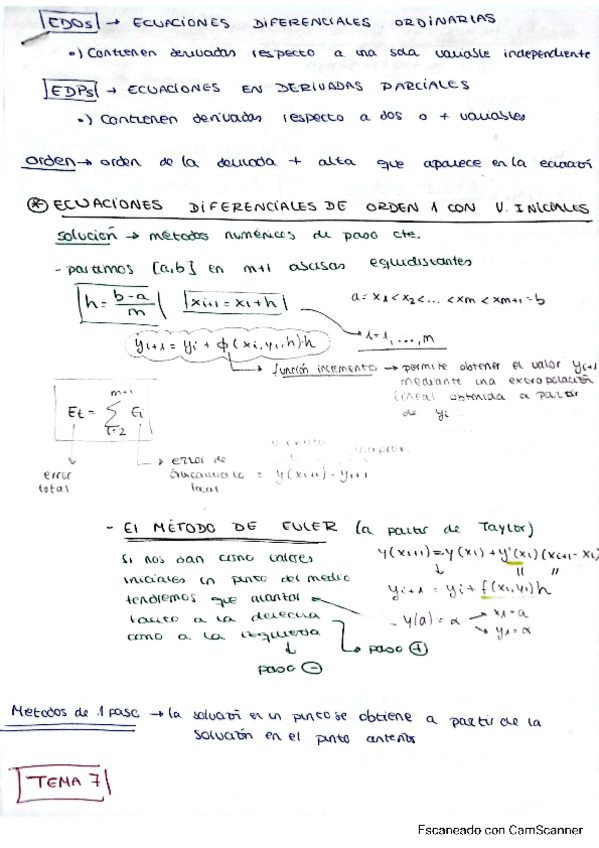 EDOs → ECUACIONES DIFERENCIALES ORDINARIAS
•) Contienen derivadas respecto a una sola variable independiente
EDPs → ECUACIONES EN DERIVADAS PARCIALES
•) Contienen derivadas respecto a dos o + variables
Orden → orden de la derivada + alta que aparece en la ecuación
* ECUACIONES DIFERENCIALES DE ORDEN 1 CON V. INICIALES
solución → métodos numéricos de paso cte.
- partimos [a,b] en m+1 abscisas equidistantes
h = b-a/m xi+1 = xi + h a = x1 < x2 < ... < xm < xm+1 = b
yi+1 = yi + ϕ(xi, yi, h)·h i=1, ..., m
función incremento → permite obtener el valor yi+1
mediante una extrapolación
lineal obtenida a partir
de yi
Et = m+1 Σ i=2 Ei
error total
error de truncamiento local = y(xi+1) - yi+1
v. aprox.
- El MÉTODO DE EULER (a partir de Taylor)
Si nos dan como valores
iniciales un punto del medio
tendremos que avanzar
tanto a la derecha
como a la izquierda
paso +
paso -
y(xi+1) = y(xi) + y'(xi)(xi+1 - xi)
yi+1 = yi + f(xi, yi) h
- y(a) = α x1 = a
y1 = α
Metodos de 1 paso → la solución en un punto se obtiene a partir de la
solución en el punto anterior
TEMA 7
Escaneado con CamScanner